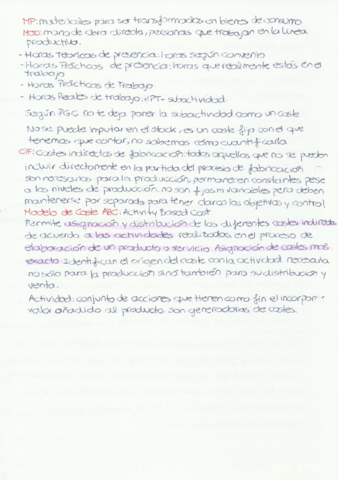 MP: materiales para ser transformados en bienes de consumo
MOD: mano de obra directa, personas que trabajan en la linea
productiva.
- Horas Teoricas de presencia: horas según convenio
- Horas Prácticas de presencia: horas que realmente estás en el
trabajo
- Horas Prácticas de Trabajo
- Horas Reales de trabajo. HPT- subactividad.
Según PGC no te deja poner la subactividad como un coste
No se puede imputar en el stock, es un coste fijo con el que
tenemos que contar, no sabemos como cuantificarla
CIF: Costes indirectos de fabricación: todos aquellos que no se pueden
incluir directamente en la partida del proceso de fabricación
son necesarios para la producción, permanecen constantes pese
a los niveles de producción. no son fijos ni variables pero deben
mantenerse por separado para tener claros los objetivos y control
Modelo de Coste ABC: Activity Based Cost
Permite asignación y distribución de los diferentes costes indirectos
de acuerdo a las actividades realizadas en el proceso de
elaboración de un producto o servicio Asignación de costes más
exacto. Identifican el origen del coste con la actividad necesaria
no sólo para la producción sino también para su distribución y
venta.
Actividad: conjunto de acciones que tienen como fin el incorporar
valor añadido al producto. son generadoras de costes.